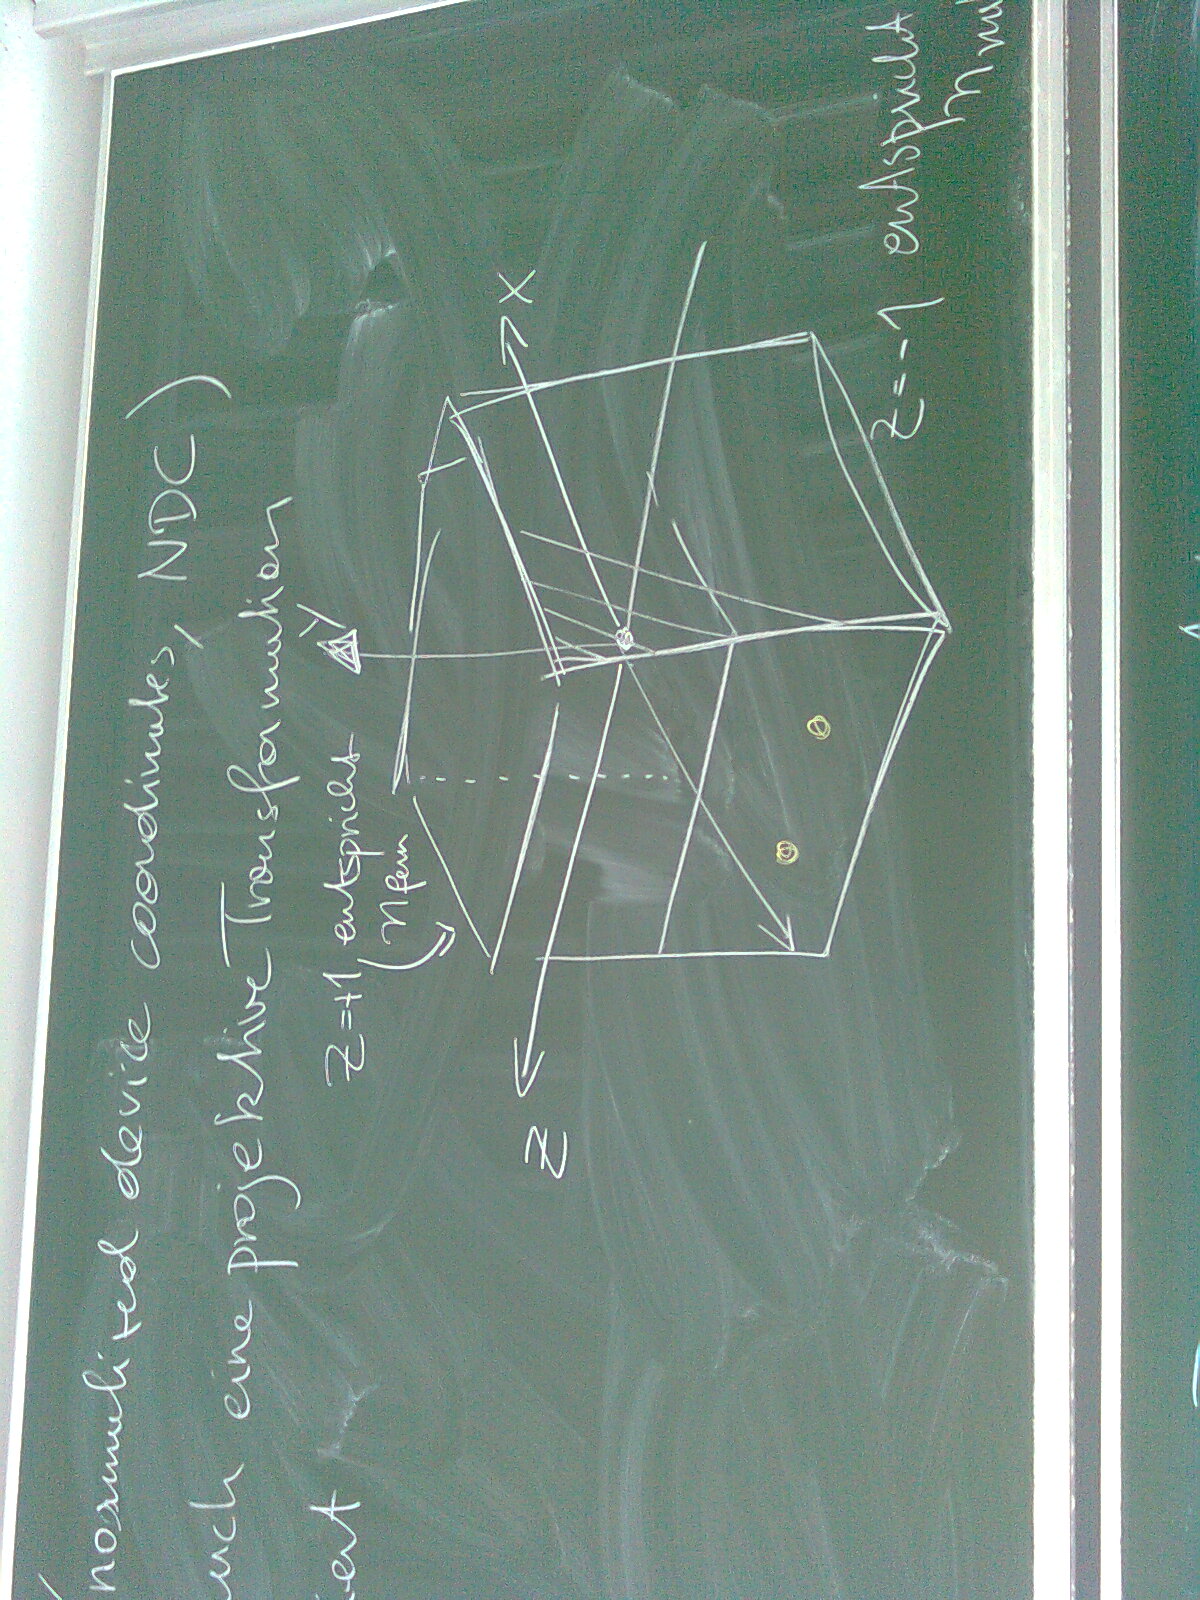 normalited device coordinates, NDC)
uch eine projektive Transformation
iert
z=+1 entspricht
n fern
Y
X
Z
z=-1 entspricht
n